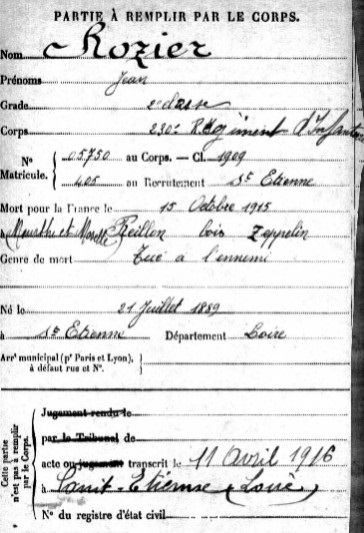 PARTIE À REMPLIR PAR LE CORPS.
Nom Rozier
Prénoms Jean
Grade 2e classe
Corps 230e Régiment d'Infanterie
N° Matricule. { 05750 au Corps. — Cl. 1909
405 au Recrutement St Etienne
Mort pour la France le 15 Octobre 1915
à (Meurthe et Moselle) Reillon bois Zeppelin
Genre de mort Tué à l'ennemi
Né le 21 Juillet 1889
à St Etienne Département Loire
Arrt municipal (pr Paris et Lyon), à défaut rue et N°. }
Cette partie n'est pas à remplir par le Corps.
Jugement rendu le
par le Tribunal de
acte ou jugement transcrit le 11 Avril 1916
à Saint-Etienne (Loire)
N° du registre d'état civil